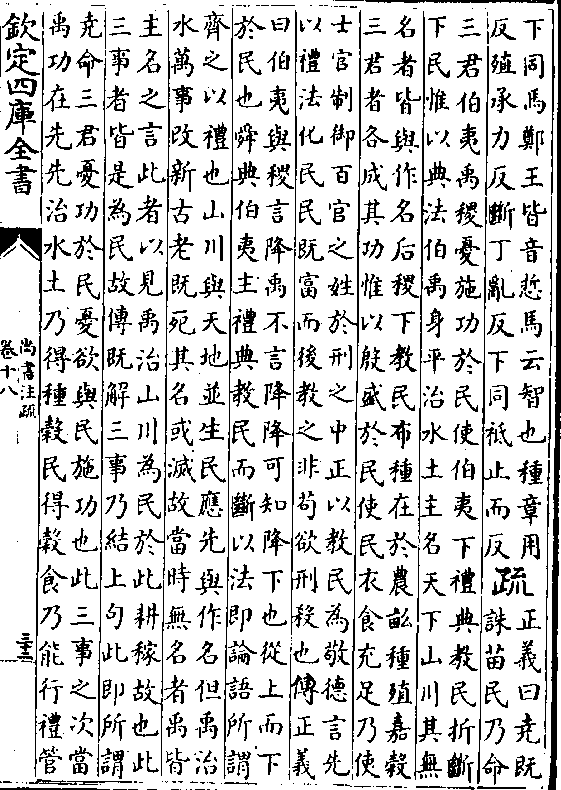 下同馬鄭王皆音悊馬云智也種章用
反殖承力反斷丁亂反下同祗止而反
疏
正義曰堯既
誅苗民乃命
三君伯夷禹稷憂施功於民使伯夷下禮典教民折斷
下民惟以典法伯禹身平治水土主名天下山川其無
名者皆與作名后稷下教民布種在於農畝種殖嘉穀
三君者各成其功惟以殷盛於民使民衣食充足乃使
士官制御百官之姓於刑之中正以教民為敬德言先
以禮法化民民既富而後教之非苟欲刑殺也傳正義
曰伯夷與稷言降禹不言降降可知降下也從上而下
於民也舜典伯夷主禮典教民而斷以法即論語所謂
齊之以禮也山川與天地並生民應先與作名但禹治
水萬事改新古老既死其名或滅故當時無名者禹皆
主名之言此者以見禹治山川為民於此耕稼故也此
三事者皆是為民故傳既解三事乃結上句此即所謂
堯命三君憂功於民憂欲與民施功也此三事之次當
禹功在先先治水土乃得種穀民得穀食乃能行禮管
欽定四庫全書
尚書注疏
卷十八
三十三